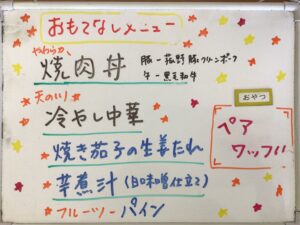 おもてなしメニュー
やわらか
焼肉丼
豚ー菰野豚クリーンポーク
牛ー黒毛和牛
天の川
冷やし中華
焼き茄子の生姜だれ
芋煮汁(白味噌仕立て)
フルーツーパイン
おやつ
ペア
ワッフル